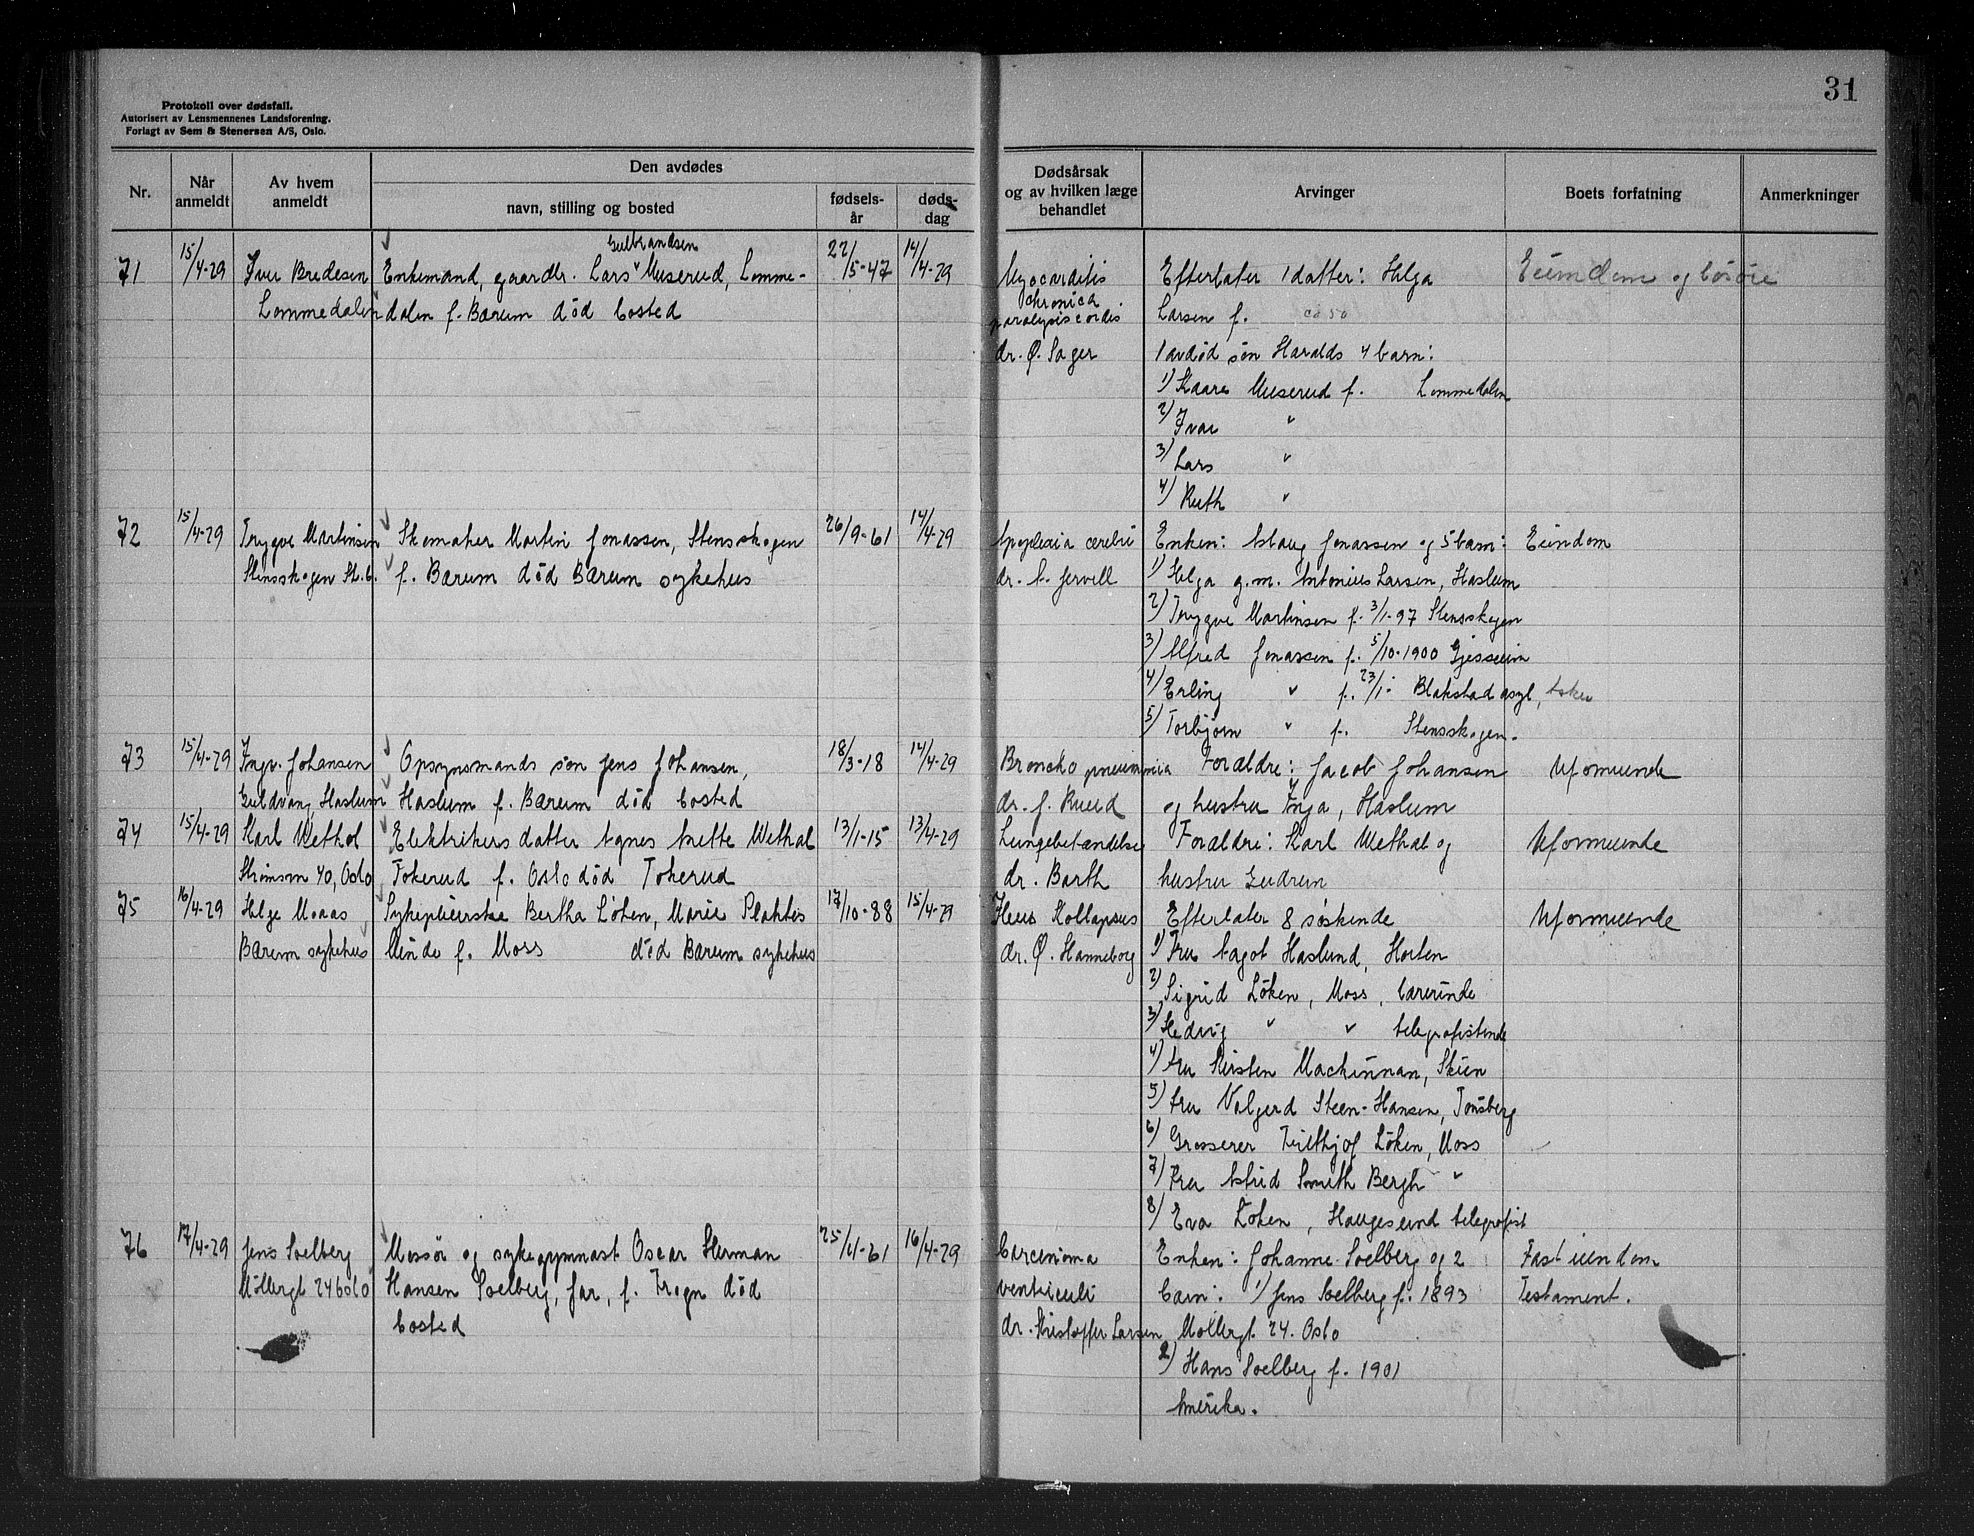 31
Protokoll over dødsfall.
Autorisert av Lensmennenes Landsforening.
Forlagt av Sem & Stenersen A/S, Oslo.
Nr.
Når anmeldt
Av hvem anmeldt
Den avdødes
navn, stilling og bosted
fødsels-år
døds-dag
Dødsårsak og av hvilken læge behandlet
Arvinger
Boets forfatning
Anmerkninger
71 15/4-29 Iver Bredesen Enkemand, gaardbr. Lars Gulbrandsen Muserud, Lomme- 22/5-47 14/4-29 Myocarditis Efterlater 1 datter: Helga Eiendom og løsøre
Lommedalen dalen f. Bærum död bosted chronica Larsen f. ca 50
paralysis cordis
dr. Ø. Sager 1 avdød søn Haralds 4 barn:
1) Kaare Muserud f. Lommedalen
2) Ivar "
3) Lars "
4) Ruth "
72 15/4-29 Trygve Martinsen Skomaker Martin Jonassen, Stensskogen 26/9-61 14/4-29 Apoplexia cerebri Enken: Aslaug Jonassen og 5 barn: Eiendom
Stensskogen St.b. f. Bærum död Bærum sykehus dr. A. Jervell 1) Helga g.m. Antonius Larsen, Haslum
2) Trygve Martinsen f. 3/1-97 Stensskogen
3) Alfred Jonassen f. 5/10-1900 Gjesseim
4) Erling " f. 23/1- Blakstad asyl, Asker
5) Torbjørn " f. Stensskogen.
73 15/4-29 Ingv. Johansen Opsynsmands søn Jens Johansen, 18/3-18 14/4-29 Broncko pneumonia Forældre: Jacob Johansen Uformuende
Guldvang Haslum Haslum f. Bærum död bosted dr. J. Ruud og hustru Inga, Haslum
74 15/4-29 Karl Wethal Elektrikers datter Agnes Anette Wethal 13/1-15 13/4-29 Lungebetændelse Forældre: Karl Wethal og Uformuende
Strömsvn 40, Oslo Tokerud f. Oslo död Tokerud dr. Barth hustru Gudrun
75 16/4-29 Helge Maaas Sykepleierske Bertha Löken, Marie Plahtes 17/10-88 15/4-29 Ileus Kollapsus Efterlater 8 söskende Uformuende
Bærum sykehus Minde f. Moss död Bærum sykehus dr. Ø. Hanneborg 1) Fru Aagot Haslund, Horten
2) Sigrid Löken, Moss, lærerinde
3) Hedvig " " telegrafistinde
4) Fru Kirsten Mackinnan, Skien
5) Fru Valgerd Steen-Hansen, Tønsberg
6) Grosserer Fridthjof Löken, Moss
7) Fru Astrid Smith Bergh "
8) Eva Löken, Haugesund telegrafist
76 17/4-29 Jens Soelberg Massør og sykegymnast Oscar Herman 25/4-61 16/4-29 Carcinoma Enken: Johanne Soelberg og 2 Fast eiendom
Möllergt 24 Oslo Hansen Soelberg, far, f. Frogn död ventriculi barn: 1) Jens Soelberg f. 1893 Testament.
bosted dr. Kristoffer Larsen Møllergt 24. Oslo
2) Hans Soelberg f. 1901
Amerika.